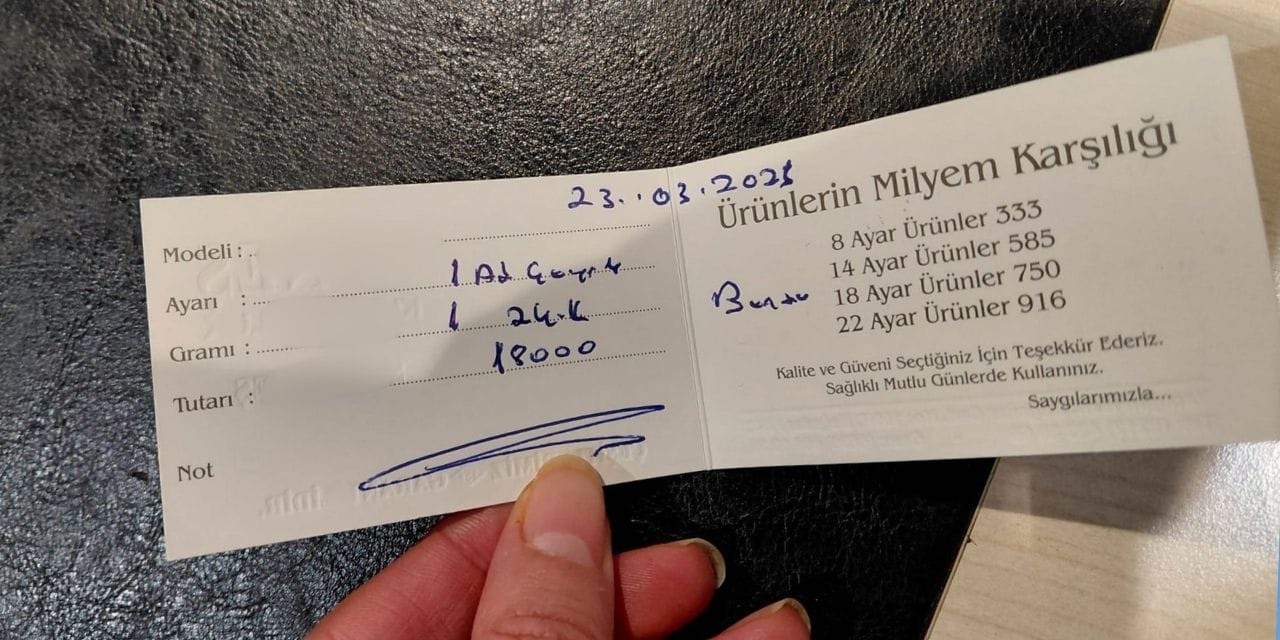 23..03.202
Modeli :
Ayarı :
1 Ad Çeyrek
Gramı :
1 24.K
Tutarı :
18000
Not
Ürünlerin Milyem Karşılığı
8 Ayar Ürünler 333
14 Ayar Ürünler 585
18 Ayar Ürünler 750
22 Ayar Ürünler 916
Kalite ve Güveni Seçtiğiniz İçin Teşekkür Ederiz.
Sağlıklı Mutlu Günlerde Kullanınız.
Saygılarımızla...